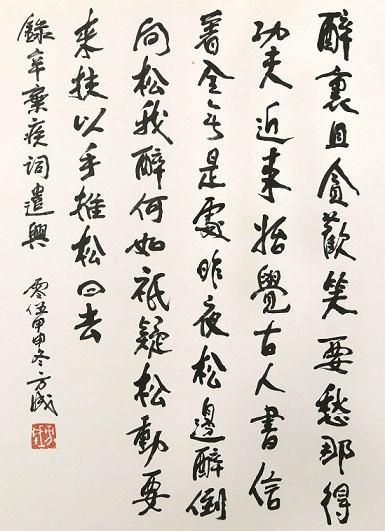 醉裏且貪歡笑要愁那得
功夫近来始覺古人書信
著全无是處昨夜松邊醉倒
问松我醉何如祇疑松動要
来扶以手推松曰去
錄辛棄疾詞遣興 零伍甲申冬方成